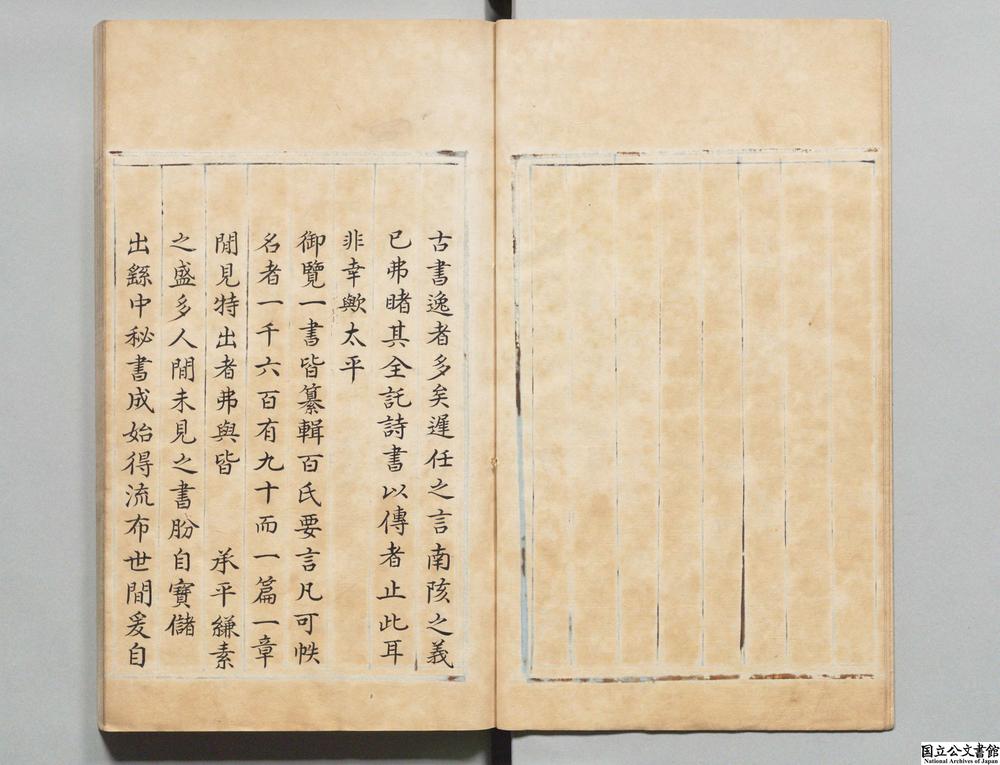 古書逸者多矣遲任之言南陔之義
已弗睹其全託詩書以傳者止此耳
非幸歟太平
御覽一書皆纂輯百氏要言凡可帙
名者一千六百有九十而一篇一章
聞見特出者弗與皆　承平縑素
之盛多人間未見之書肦自寶儲
出繇中秘書成始得流布世間爰自
国立公文書館
National Archives of Japan